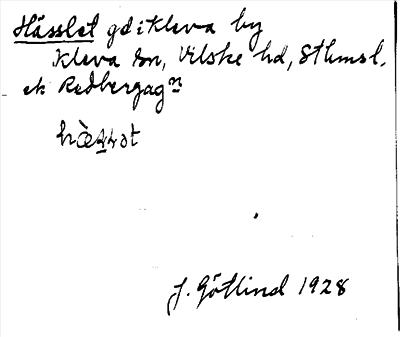 Hässlet gd i Kleva by
Kleva sn, Vilske hd, Sthmsl.
ek Redbergagn
J. Götlind 1928